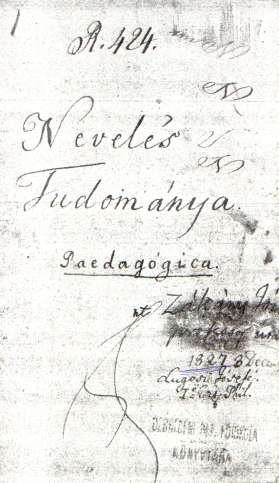 R. 424.
Nevelés
Tudománya.
Paedagógica.
nt Zákány
professor
1827 3 Dec
Lugosi József
DEBRECENI REF. KOLLÉGIUM
KÖNYVTÁRA